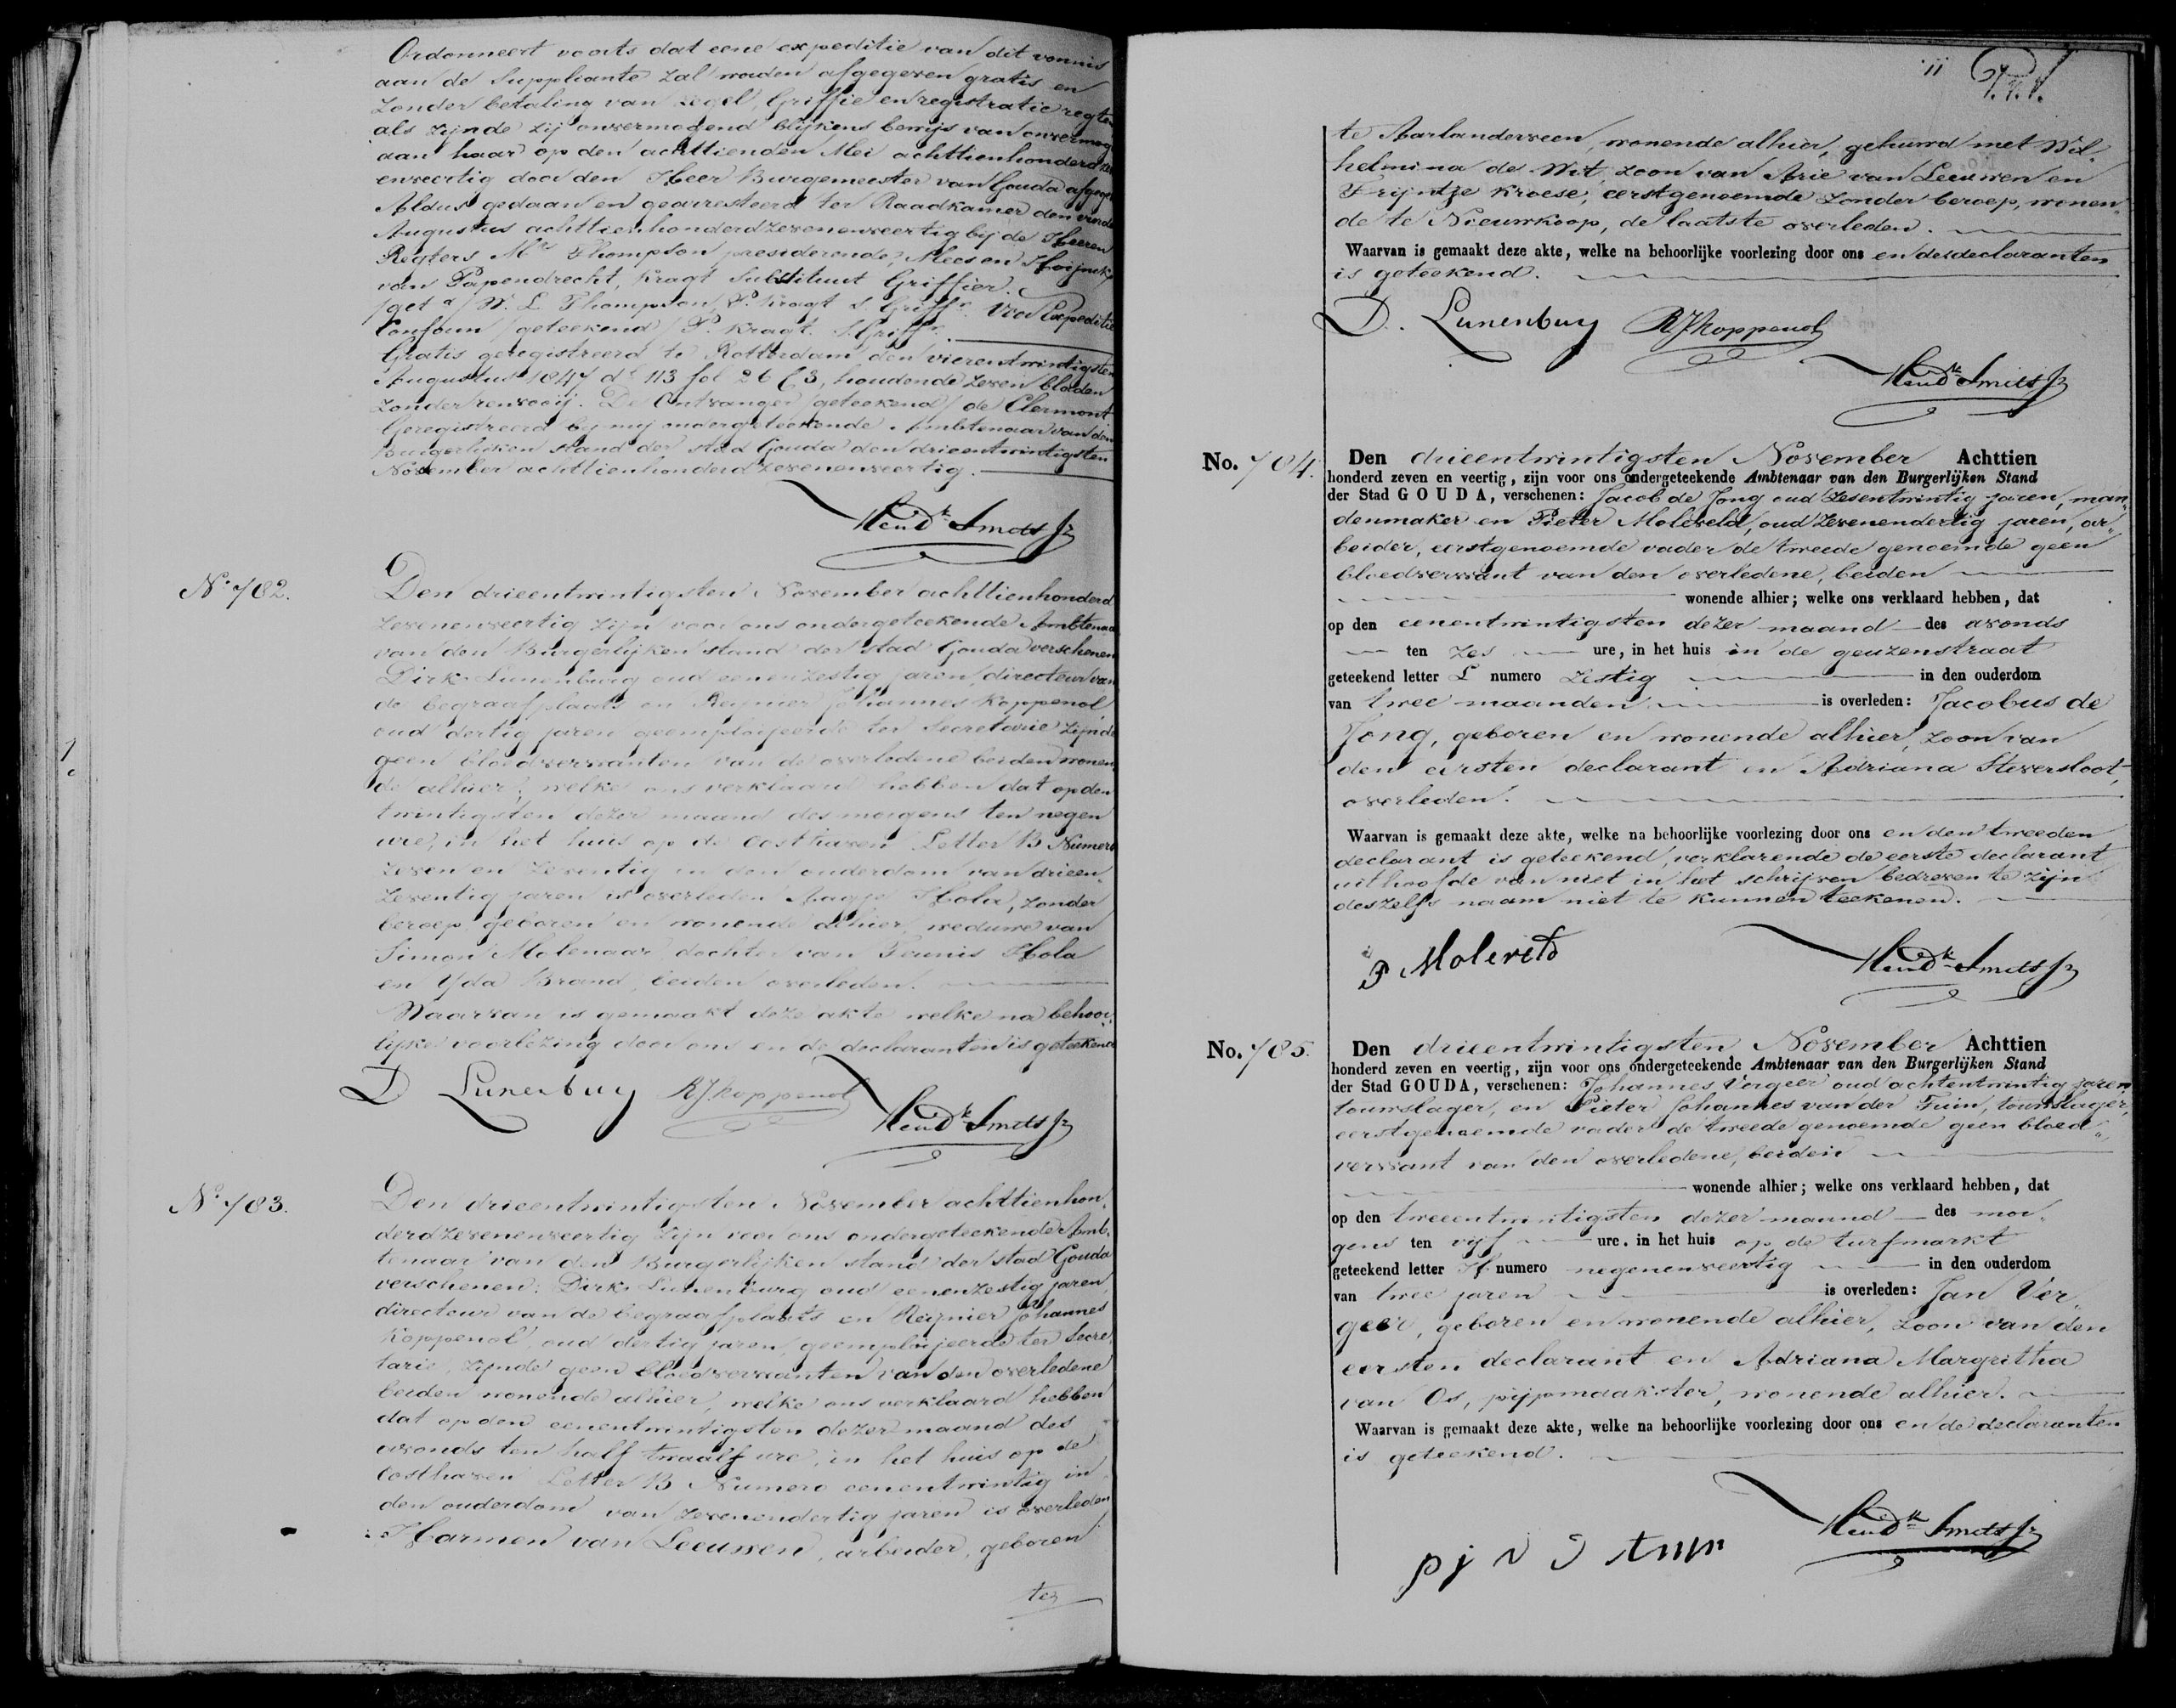 Ordonneert voorts dat eene expeditie van dit vonnis
aan de Suppliante zal worden afgegeven gratis en
zonder betaling van zegel, Griffie en registratie regten
als zijnde zij onvermogend blijkens bewijs van onvermog
aan haar op den achttienden Mei achttienhonderd zev
enveertig door den Heer Burgemeester van Gouda afgege
Aldus gedaan en gearresteerd ter Raadkamer den vierde
Augustus achttienhonderdzevenenveertig bij de Heeren
Regters Mrs Thompson presiderende, Mees en Hoijnck
van Papendrecht, Kragt Substituut Griffier.
/get d/ W. L. Thompson, P. Kragt S. Griffr. Voor Expeditie
Conform /geteekend/ P. Kragt. S. Griffr.
Gratis geregistreerd te Rotterdam den vierentwintigsten
Augustus 1847 dl 113 fol 26 C 3, houdende zeven bladen
zonder renvooij. De Ontvanger /geteekend/ de Clermont
Geregistreerd bij mij ondergeteekende Ambtenaar van den
Burgerlijken stand der stad Gouda den drieentwintigsten
November achttienhonderdzevenenveertig.
Hendk Smits Jz
No 782.
Den drieentwintigsten November achttienhonderd
zevenenveertig zijn voor ons ondergeteekende Ambtenaar
van den Burgerlijken stand der stad Gouda verschenen
Dirk Lunenburg oud eenenzestig jaren, directeur van
de begraafplaats en Reijnier Johannes Koppenol
oud dertig jaren geemploijeerde ter Secretarie zijnde
geen bloedverwanten van de overledene beiden wonen
de alhier; welke ons verklaard hebben dat op den
twintigsten dezer maand des morgens ten negen
ure, in het huis op de Oosthaven Letter B Numero
zeven en zeventig in den ouderdom van drieen
zeventig jaren is overleden Aagje Hola, zonder
beroep geboren en wonende alhier, weduwe van
Simon Molenaar dochter van Teunis Hola
en Yda Brand, beiden overleden.
Waarvan is gemaakt deze akte welke na behoor
lijke voorlezing door ons en de declaranten is geteekend
D Lunenburg RJKoppenol
Hendk Smits Jz
No 783.
Den drieentwintigsten November achttienhon
derdzevenenveertig zijn voor ons ondergeteekende Amb
tenaar van den Burgerlijken stand der stad Gouda
verschenen: Dirk Lunenburg oud eenenzestig jaren,
directeur van de begraafplaats en Reijnier Johannes
Koppenol, oud dertig jaren, geemploijeerde ter Secre
tarie, zijnde geen bloedverwanten van den overledene
beiden wonende alhier, welke ons verklaard hebben
dat op den eenentwintigsten dezer maand des
avonds ten half twaalf ure, in het huis op de
Oosthaven Letter B Numero eenentwintig in
den ouderdom van zevenendertig jaren is overleden
Harmen van Leeuwen, arbeider, geboren
te
te Aarlanderveen, wonende alhier, gehuwd met Wil
helmina de Wit, zoon van Arie van Leeuwen en
Trijntje Kroese, eerstgenoemde zonder beroep, wonen
de te Nieuwkoop, de laatste overleden.
Waarvan is gemaakt deze akte, welke na behoorlijke voorlezing door ons en de declaranten
is geteekend.
D. Lunenburg RJKoppenol
Hendk Smits Jz
No. 784.
Den drieentwintigsten November Achttien
honderd zeven en veertig, zijn voor ons ondergeteekende Ambtenaar van den Burgerlijken Stand
der Stad GOUDA, verschenen: Jacob de Jong oud zesentwintig jaren, man
denmaker en Pieter Moleveld, oud zevenendertig jaren, ar
beider, eerstgenoemde vader de tweede genoemde geen
bloedverwant van den overledene, beiden
wonende alhier; welke ons verklaard hebben, dat
op den eenentwintigsten dezer maand des avonds
ten zes ure, in het huis in de geuzenstraat
geteekend letter L numero zestig in den ouderdom
van twee maanden is overleden: Jacobus de
Jong, geboren en wonende alhier, zoon van
den eersten declarant en Adriana Steversloot,
overleden.
Waarvan is gemaakt deze akte, welke na behoorlijke voorlezing door ons en den tweeden
declarant is geteekend, verklarende de eerste declarant
uithoofde van niet in het schrijven bedreven te zijn
deszelfs naam niet te kunnen teekenen.
P Moleveld
Hendk Smits Jz
No. 785.
Den drieentwintigsten November Achttien
honderd zeven en veertig, zijn voor ons ondergeteekende Ambtenaar van den Burgerlijken Stand
der Stad GOUDA, verschenen: Johannes Vergeer oud achtentwintig jaren
touwslager, en Pieter Johannes van der Tuin, touwslager,
eerstgenoemde vader de tweede genoemde geen bloed
verwant van den overledene, beiden
wonende alhier; welke ons verklaard hebben, dat
op den tweeentwintigsten dezer maand des mor
gens ten vijf ure, in het huis op de turfmarkt
geteekend letter H numero negenenveertig in den ouderdom
van twee jaren is overleden: Jan Ver
geer, geboren en wonende alhier, zoon van den
eersten declarant en Adriana Margritha
van Os, pijpmaakster, wonende alhier.
Waarvan is gemaakt deze akte, welke na behoorlijke voorlezing door ons en de declaranten
is geteekend.
Hendk Smits Jz